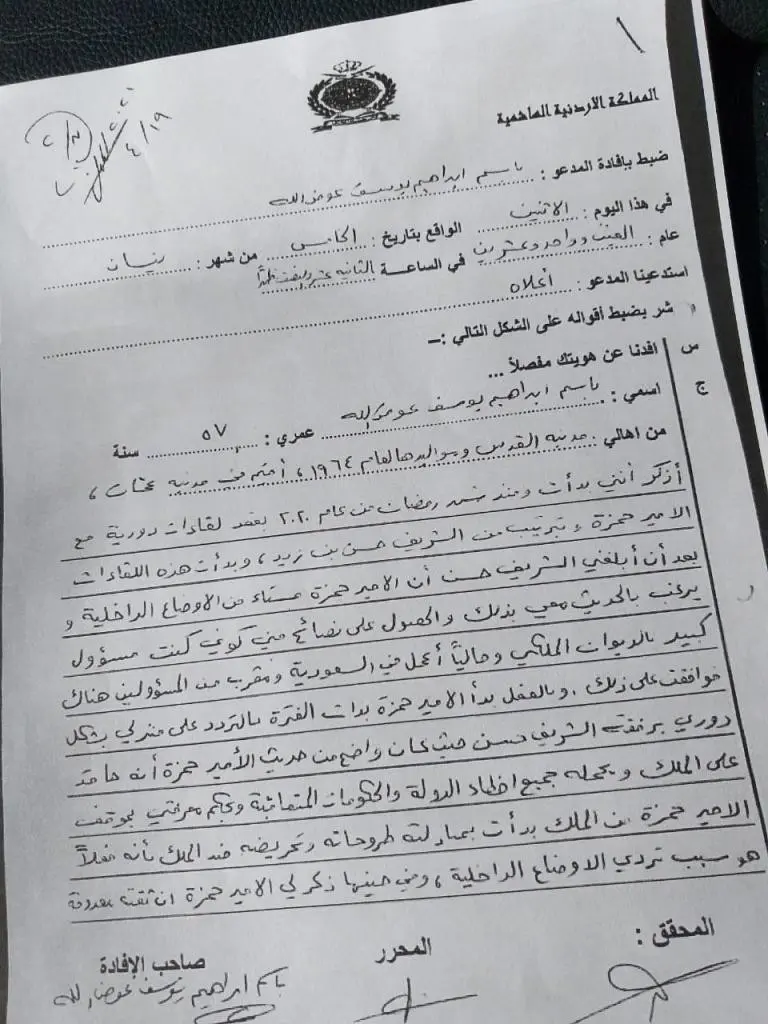 ١
٢٠٢١
٤/١٩
المملكة الاردنية الهاشمية
ضبط بإفادة المدعو : باسم ابراهيم يوسف عوض الله
في هذا اليوم : الاثنين الواقع بتاريخ : الخامس من شهر : نيسان
عام : الفين وواحد وعشرين في الساعة الثانية عشر ونصف ظهراً
استدعينا المدعو : أعلاه
شر بضبط أقواله على الشكل التالي :–
س افدنا عن هويتك مفصلاً ...
ج اسمي : باسم ابراهيم يوسف عوض الله عمري : ٥٧ سنة
من اهالي : مدينة القدس ومواليدها لعام ١٩٦٤ ، أقيم في مدينة عمان ،
أذكر أنني بدأت ومنذ شهر رمضان من عام ٢٠٢٠ بعقد لقاءات دورية مع
الامير حمزة وبترتيب من الشريف حسن بن زيد ، وبدأت هذه اللقاءات
بعد أن أبلغني الشريف حسن أن الامير حمزة مستاء من الاوضاع الداخلية و
يرغب بالحديث معي بذلك والحصول على نصائح مني كوني كنت مسؤول
كبير بالديوان الملكي وحالياً أعمل في السعودية ومقرب من المسؤولين هناك
فوافقت على ذلك . وبالفعل بدأ الامير حمزة بذات الفترة بالتردد على منزلي بشكل
دوري برفقة الشريف حسن حيث كان واضح من حديث الأمير حمزة أنه حاقد
على الملك و يحمله جميع اخطاء الدولة والحكومات المتعاقبة وبحكم معرفتي بموقف
الامير حمزة من الملك بدأت بمبادلته طروحاته وتحريضه ضد الملك بأنه فعلاً
هو سبب تردي الاوضاع الداخلية ، وفي حينها ذكر لي الامير حمزة ان ثقته معدومة
المحقق : المحرر صاحب الإفادة
باسم ابراهيم يوسف عوض الله